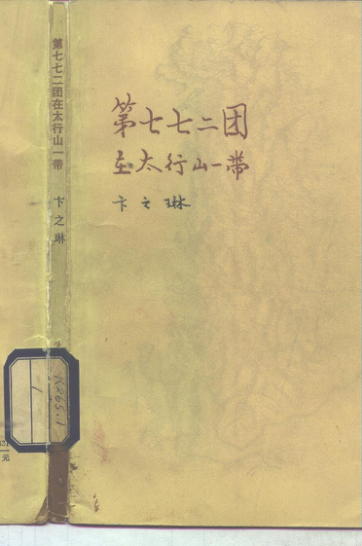 第七七二团
在太行山一带
卞之琳
第七七二团在太行山一带
卞之琳
K265.1
1
元